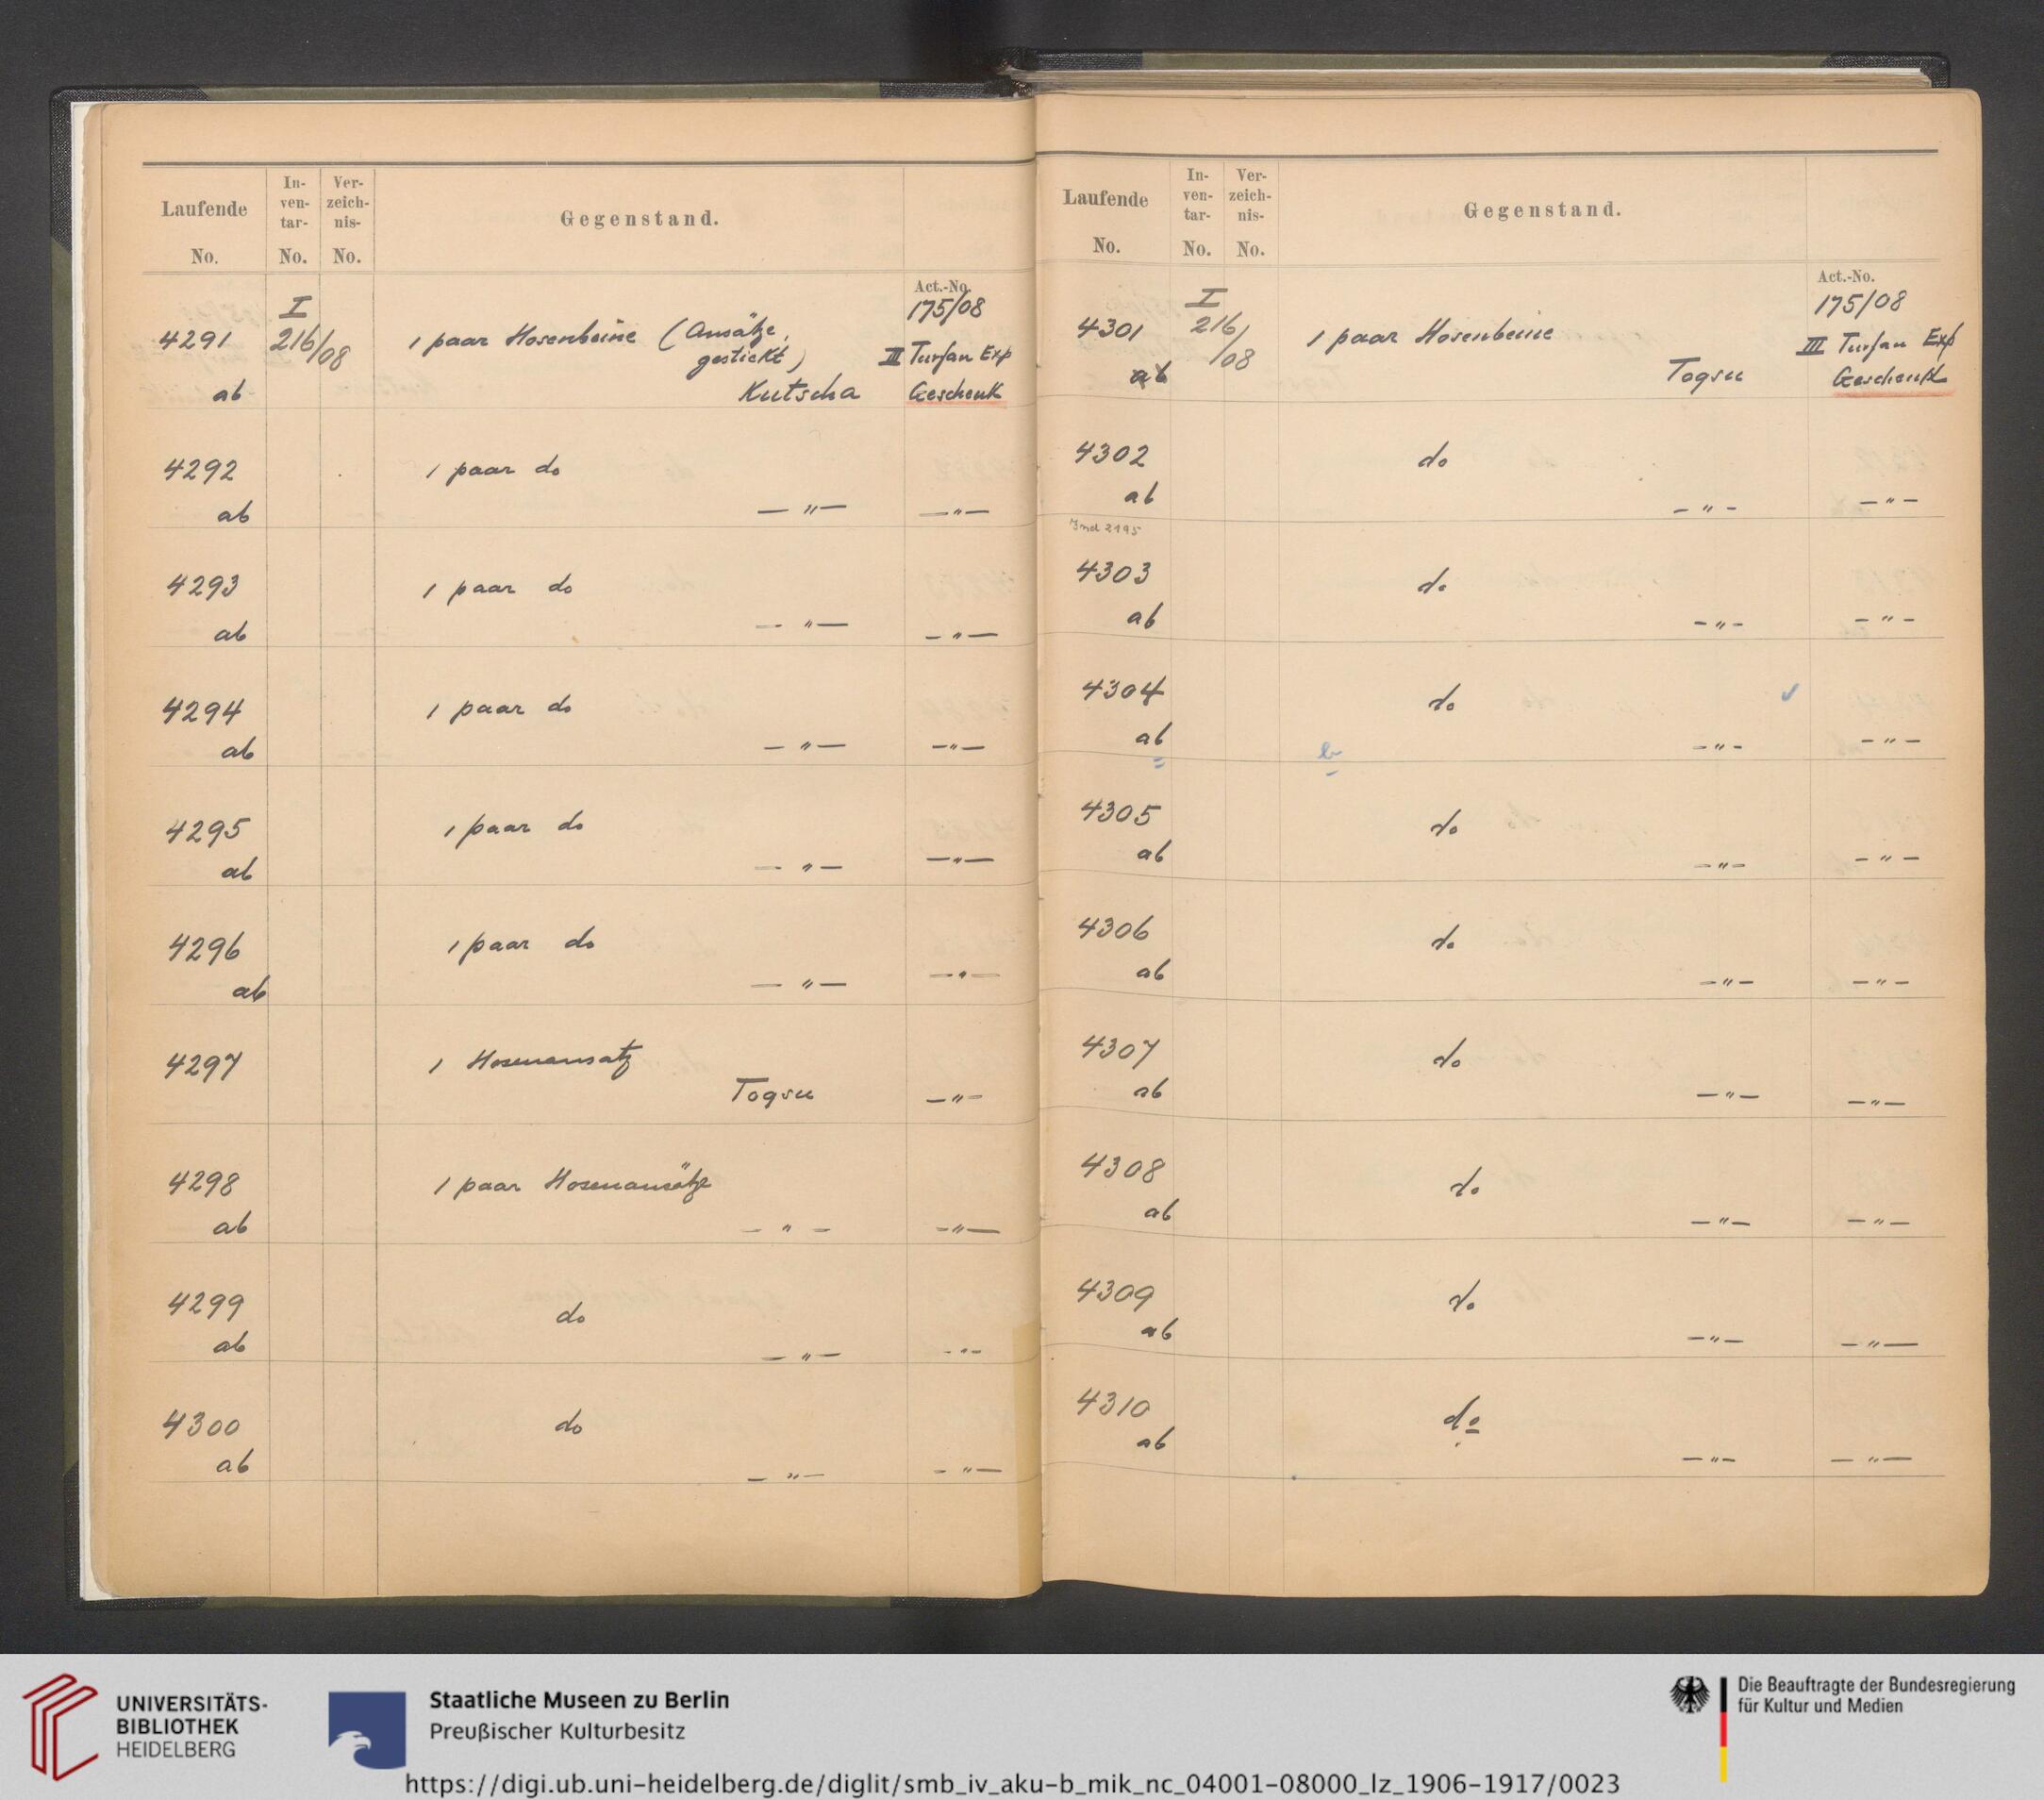 Laufende No.
In-ven-tar-No.
Ver-zeich-nis-No.
Gegenstand.
Act.-No.
175/08
I
4291
216/08
1 paar Hosenbeine (Ansätze,
gestickt)
III Turfan Exp
ab
Kutscha
Geschenk
4292
1 paar do
ab
— " —
— " —
4293
1 paar do
ab
— " —
— " —
4294
1 paar do
ab
— " —
— " —
4295
1 paar do
ab
— " —
— " —
4296
1 paar do
ab
— " —
— " —
4297
1 Hosenansatz
Togsu
— " —
4298
1 paar Hosenansätze
ab
— " —
— " —
4299
do
ab
— " —
— " —
4300
do
ab
— " —
— " —
Laufende No.
In-ven-tar-No.
Ver-zeich-nis-No.
Gegenstand.
Act.-No.
I
175/08
4301
216/08
1 paar Hosenbeine
III Turfan Exp
ab
Togsu
Geschenk
4302
do
ab
— " —
— " —
Ind 2195
4303
do
ab
— " —
— " —
4304
do
✓
ab
b
— " —
— " —
4305
do
ab
— " —
— " —
4306
do
ab
— " —
— " —
4307
do
ab
— " —
— " —
4308
do
ab
— " —
— " —
4309
do
ab
— " —
— " —
4310
do
ab
— " —
— " —
UNIVERSITÄTS-
BIBLIOTHEK
HEIDELBERG
Staatliche Museen zu Berlin
Preußischer Kulturbesitz
Die Beauftragte der Bundesregierung
für Kultur und Medien
https://digi.ub.uni-heidelberg.de/diglit/smb_iv_aku-b_mik_nc_04001-08000_lz_1906-1917/0023